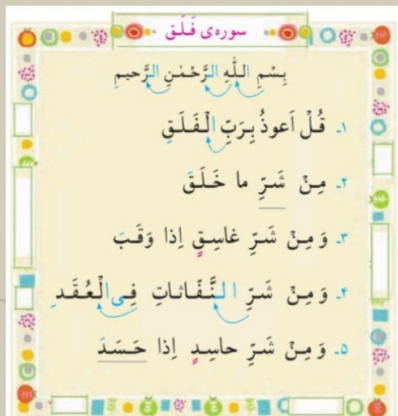 سوره‌ی فَلَق
بِسْمِ اللّٰهِ الرَّحْمٰنِ الرَّحیمِ
۱ـ قُلْ اَعوذُ بِرَبِّ الْفَلَقِ
۲ـ مِنْ شَرِّ ما خَلَقَ
۳ـ وَ مِنْ شَرِّ غاسِقٍ اِذا وَقَبَ
۴ـ وَ مِنْ شَرِّ النَّفّاثاتِ فِی الْعُقَدِ
۵ـ وَ مِنْ شَرِّ حاسِدٍ اِذا حَسَدَ